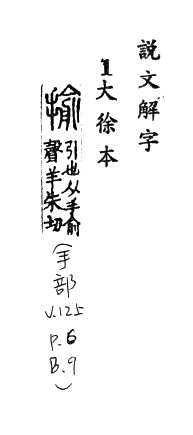 說文解字
1大徐本
揄 引也从手俞
聲羊朱切
(手部
V.125
P.6
B.9)